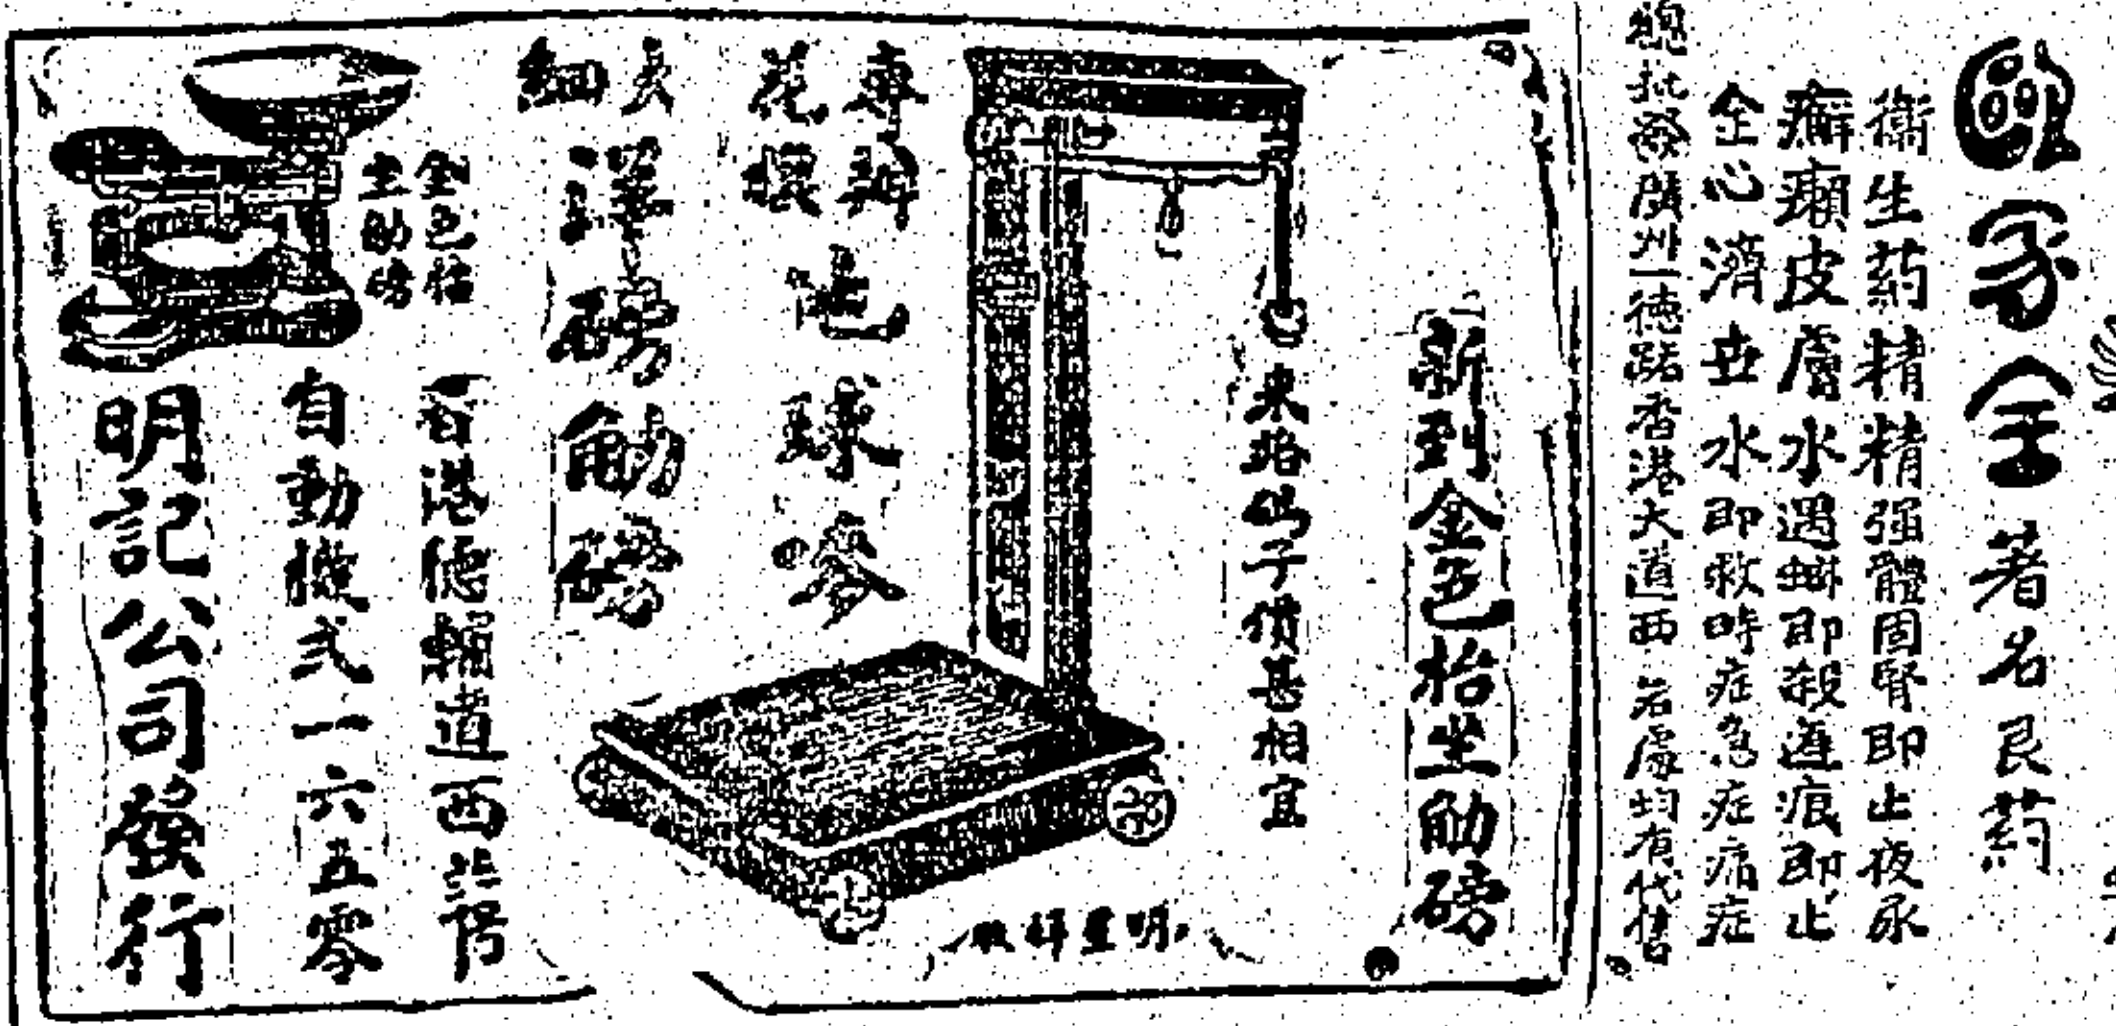 家全著名良葯
衛生葯精精强體固腎即止夜尿
癬癩皮膚水遇癬即殺連痕即止
全心濟世水即救時症急症痛症
總批發廣州一德路香港大道西各處均有代售
新到金色枱坐觔磅
來路 子價甚相宜
專辦
花旗
電球嘜
大
細
洋磅觔磅
金色枱
坐觔磅
香港德輔道西
自動機式一六五零
明記公司發行